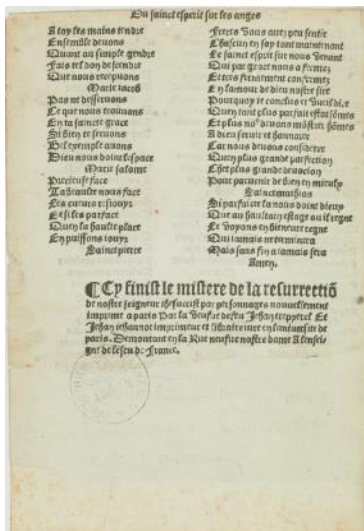 Du sainct esperit sur les anges
A toy les mains tendre
Ensemble deuons
Quant au simple gendre
Fais tel don descendre
Que nous receuions
Marie iacob
Pas ne desseruons
Ce que nous trouuons
En ta saincte grace
Si bien te seruons
Bel exemple auons
Dieu nous doint espace
Marie salome
Precieuse face
La haulte nous face
Les cueurs resiouyr
Et si les parface
Quen la haulte place
En puissons iouyr
Sainct pierre
Freres vous auez peu sentir
Chascun en soy tout maintenant
Le sainct esprit sur nous venant
Qui par grace nous a fermez
Et tres fermement confermez
En lamour de dieu nostre sire
Pourquoy ie conclus et vueil dire
Quen tant plus parfait est lõme
Et plus no9 deuons mõstrer hõmes
A dieu seruir et honnorer
Car nous deuons considerer
Quen plus grande parfection
Chet plus grande deuocion
Pour paruenir de bien en mieulx
Sainct mathias
Si parfaicte la nous doint dieux
Que au haultain estage ou il regne
Le voyons en bieneure regne
Qui iamais ne terminera
Mais sans fin a iamais sera
Amen.
¶ Cy finist le mistere de la resurrectiõ
de nostre seigneur ihesucrist par personnages nouuellement
imprime a paris Par la veufue de feu Jehan trepperel Et
Jehan iehannot imprimeur et libraire iure en luniuersite de
paris. Demourant en la Rue neufue nostre dame A lensei-
gne de lescu de France.